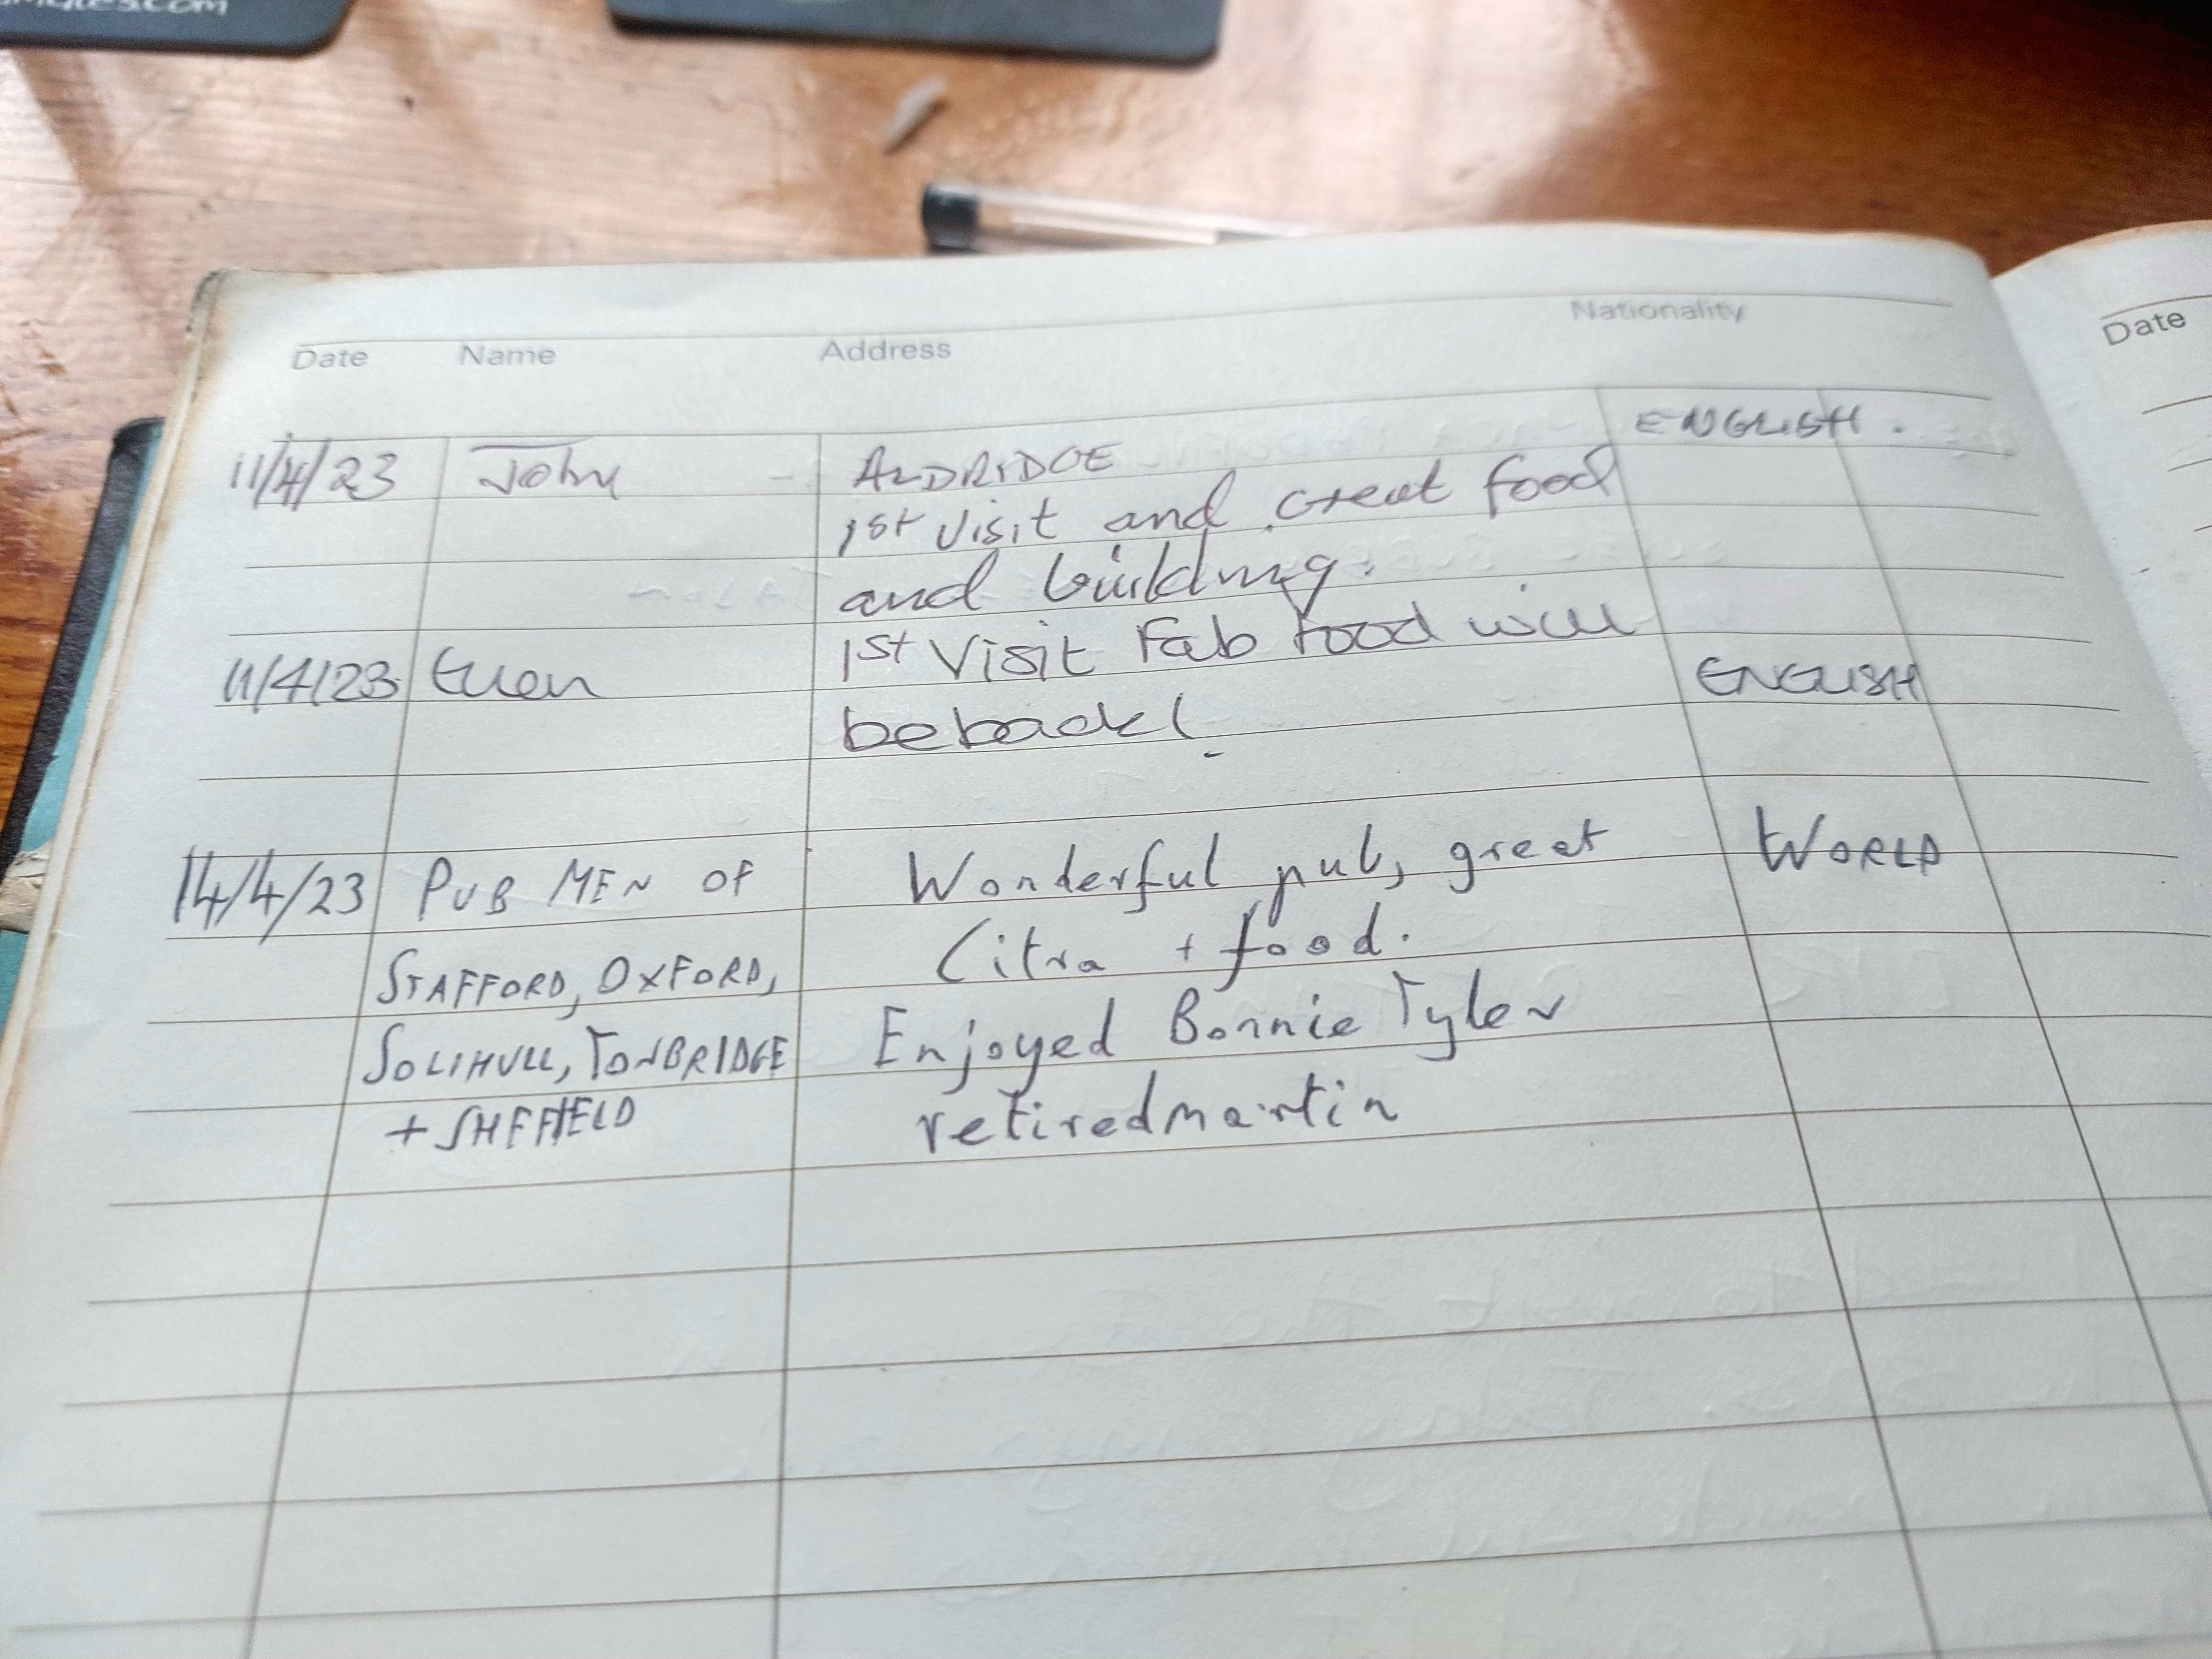 Date Name Address Nationality
Date
11/4/23 John ALDRIDGE ENGLISH.
1st visit and Great food
and building.
11/4/23 1st Visit Fab food will ENGLISH
be back!
14/4/23 PUB MEN OF Wonderful pub, great WORLD
STAFFORD, OXFORD, Citra + food.
SOLIHULL, TONBRIDGE Enjoyed Bonnie Tyler
+ SHEFFIELD retiredmartin